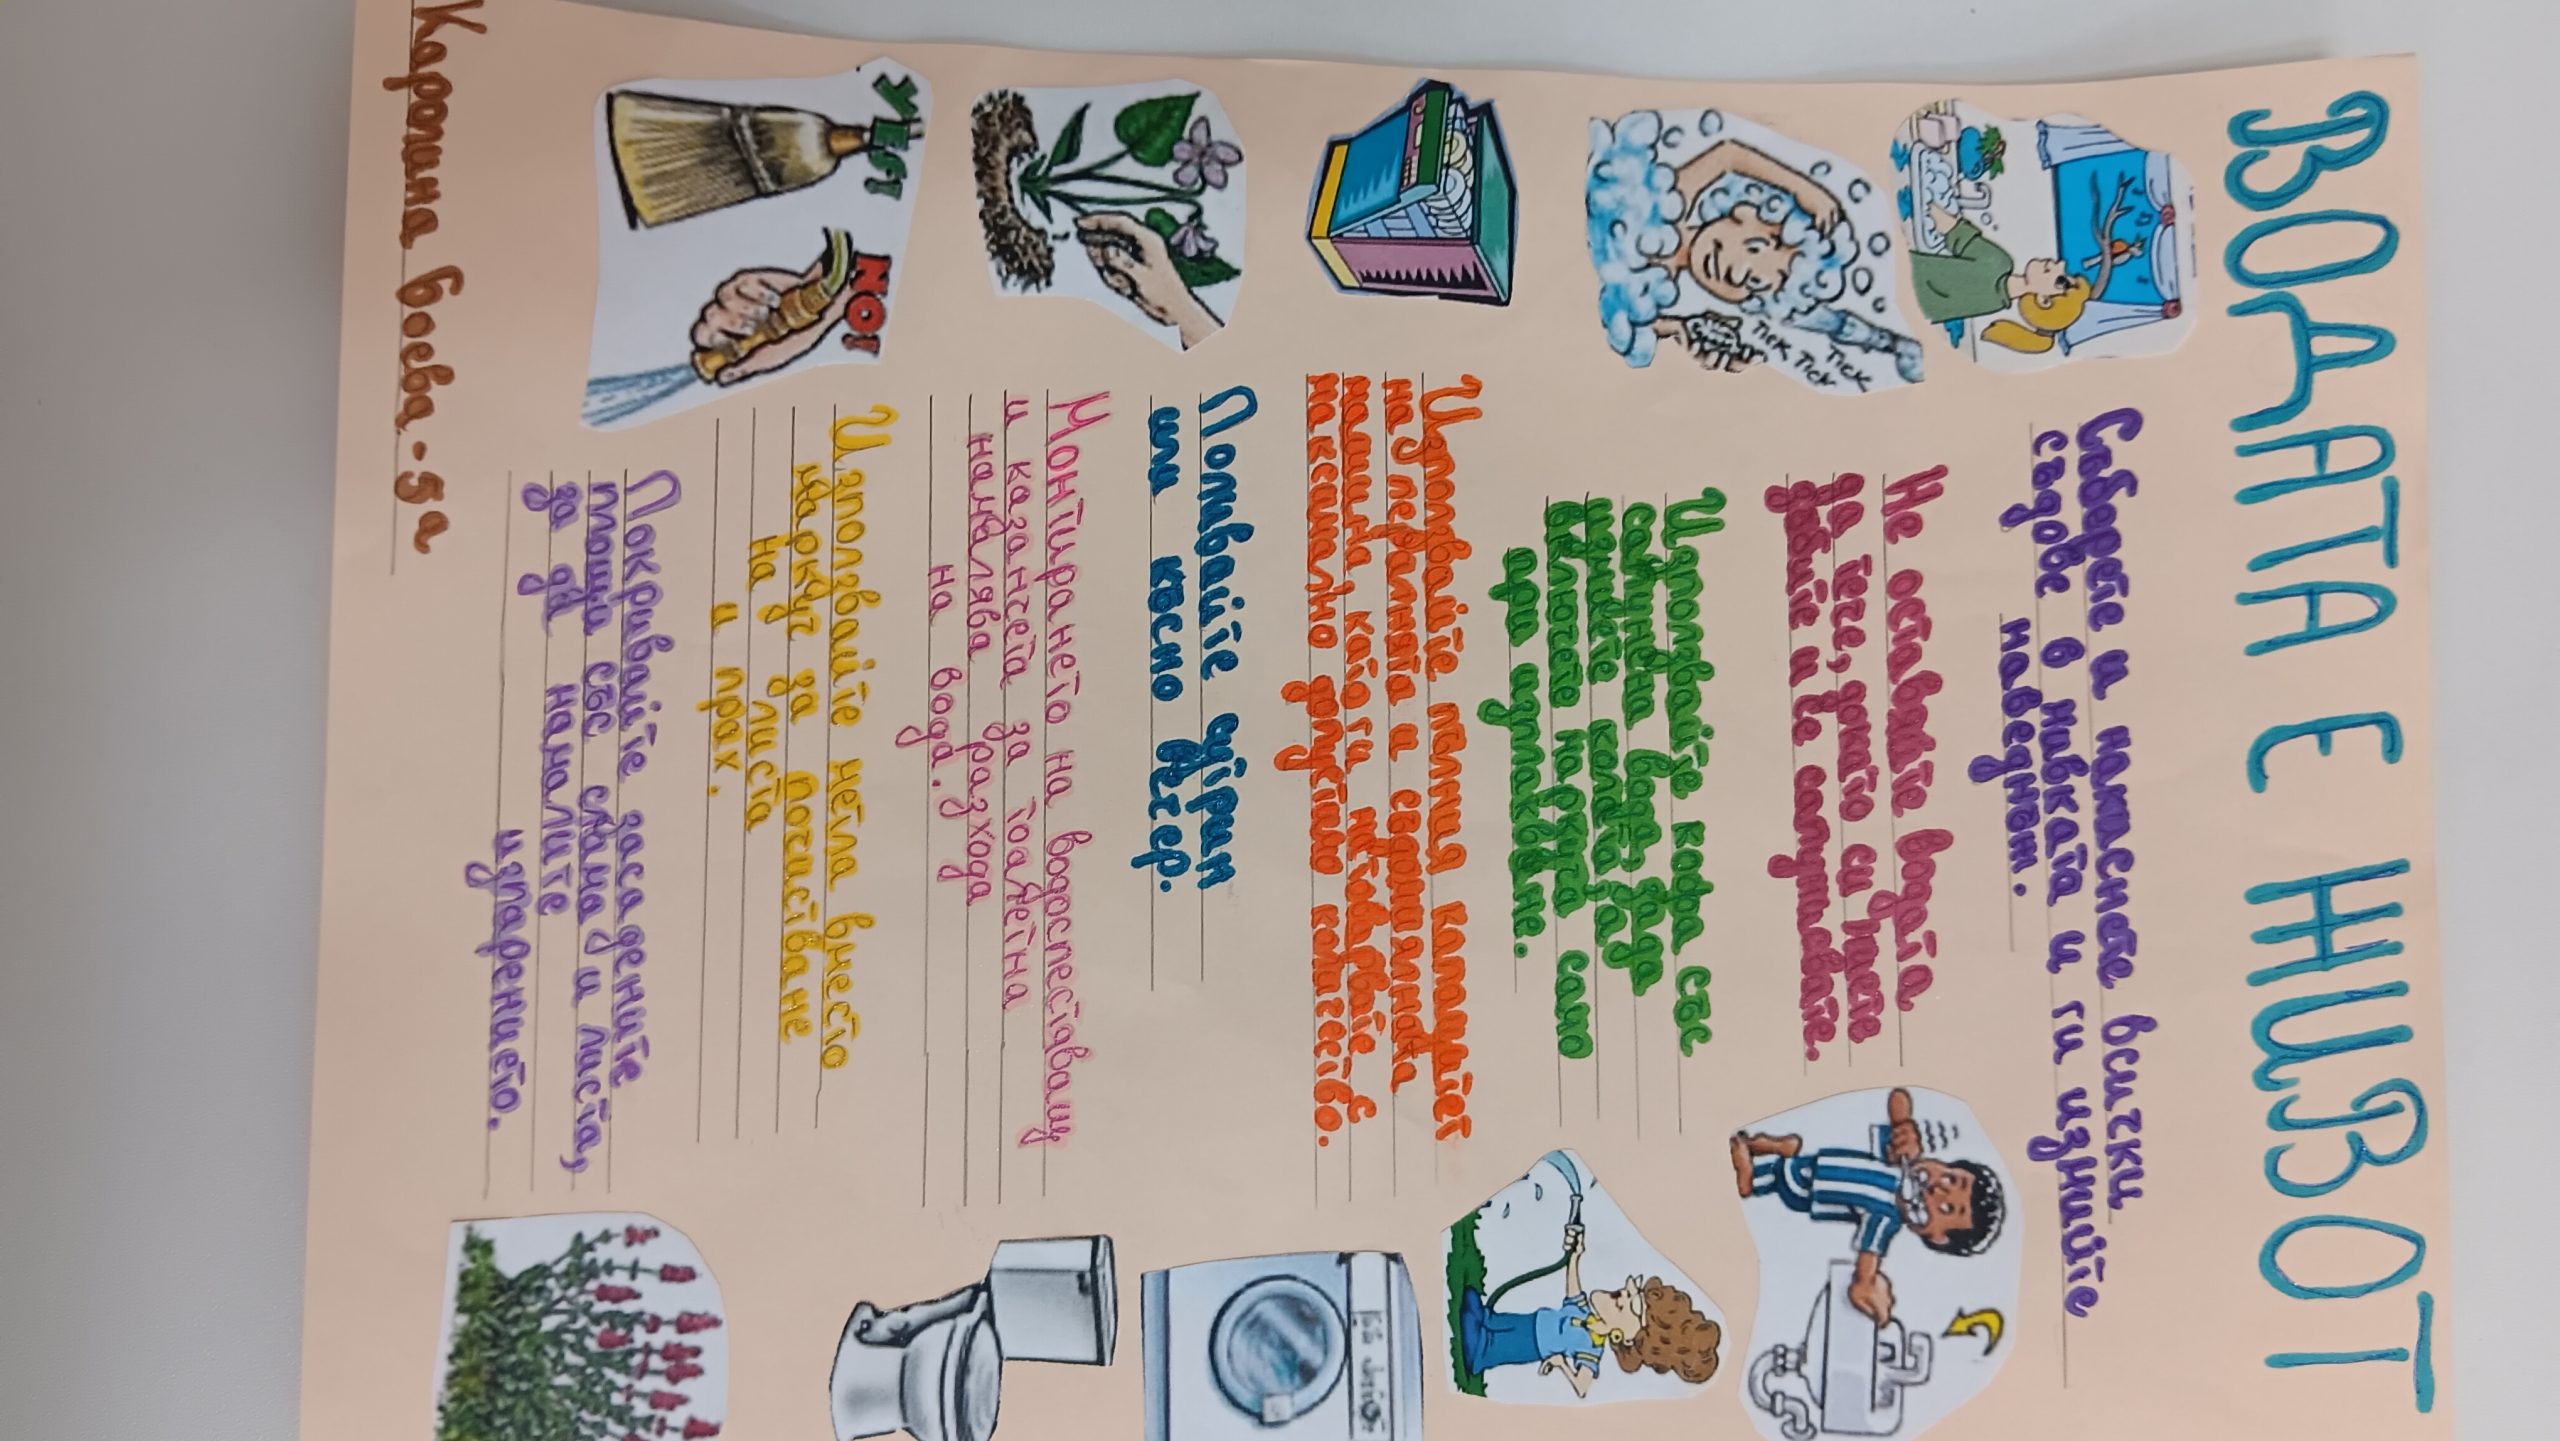 ВОДАТА Е ЖИЗВОТ
Съберете и накиснете всички
съдове в мивката и ги измийте
наведнъж.
TICK TICK
TICK TICK
Не оставяйте водата
да тече, докато си миете
зъбите и се сапунисвате.
Използвайте кофа със
сапунена вода, за да
миете колата, а
включете маркуча само
при изплакване.
Използвайте пълния капацитет
на пералнята и съдомиялната
машина, като ги натоварвате с
максимално допустимо количество.
Поливайте сутрин
или късно вечер.
Монтирането на водоспестяващи
и казанчета за тоалетна
намалява разхода
на вода.
YES!
NO!
Използвайте метла вместо
маркуч за почистване
на листа
и прах.
Покривайте засадените
площи със слама и листа,
за да намалите
изпарението.
Каролина Боева - 5 а